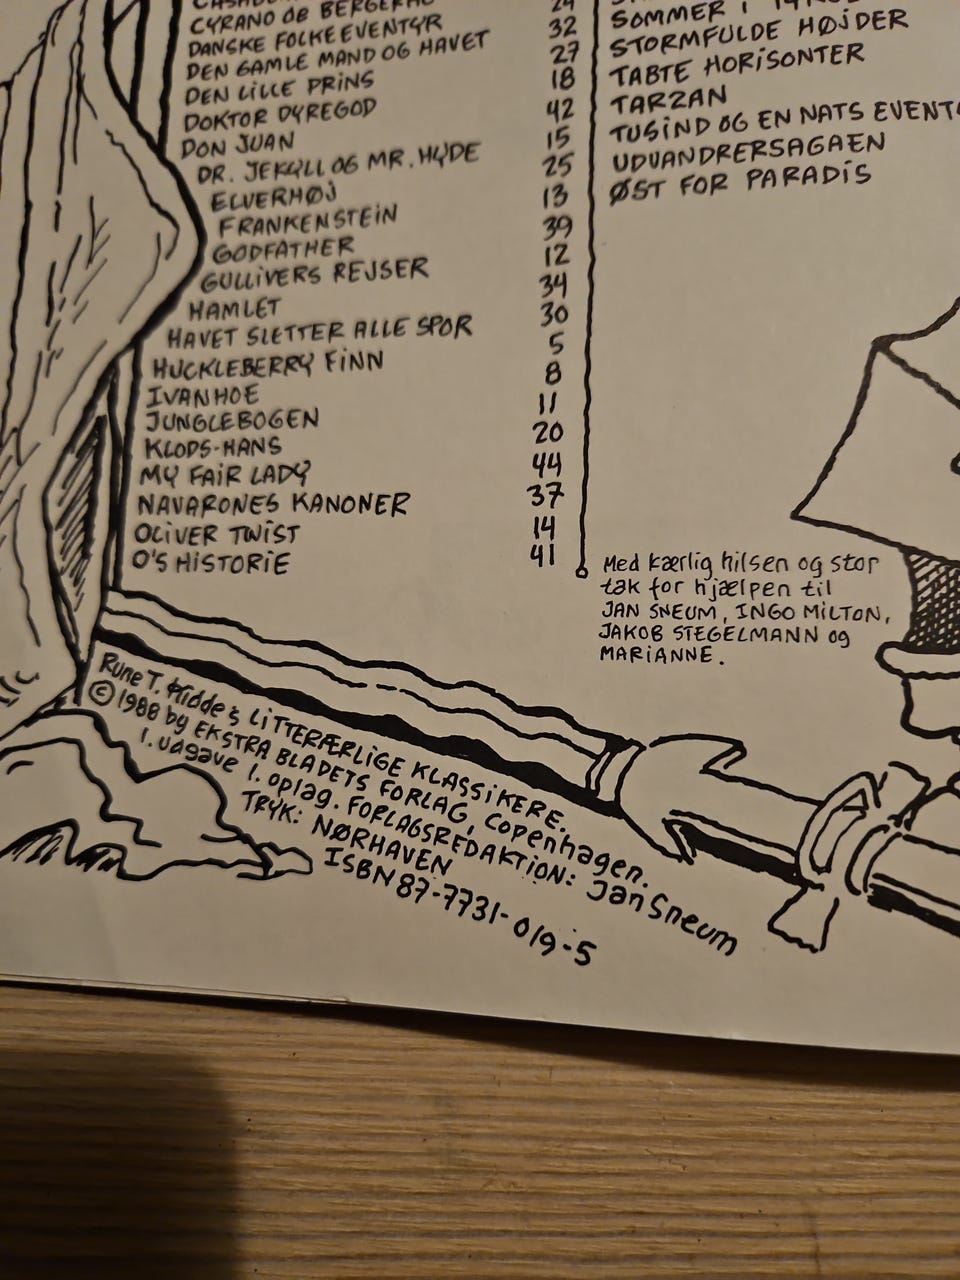 CYRANO DE BERGERAC
DANSKE FOLKEEVENTYR 24
DEN GAMLE MAND OG HAVET 32
DEN LILLE PRINS 27
DOKTOR DYREGOD 18
DON JUAN 42
DR. JEKYLL OG MR. HYDE 15
ELVERHØJ 25
FRANKENSTEIN 13
GODFATHER 39
GULLIVERS REJSER 12
HAMLET 34
HAVET SLETTER ALLE SPOR 30
HUCKLEBERRY FINN 5
IVANHOE 8
JUNGLEBOGEN 11
KLODS-HANS 20
MY FAIR LADY 44
NAVARONES KANONER 37
OLIVER TWIST 14
O'S HISTORIE 41
SOMMER I
STORMFULDE HØJDER
TABTE HORISONTER
TARZAN
TUSIND OG EN NATS EVENTY
UDVANDRERSAGAEN
ØST FOR PARADIS
Med kærlig hilsen og stor
tak for hjælpen til
JAN SNEUM, INGO MILTON,
JAKOB STEGELMANN og
MARIANNE.
Rune T. Kidde's LITTERÆRLIGE KLASSIKERE.
© 1988 by EKSTRA BLADETS FORLAG, Copenhagen.
1. udgave 1. oplag. FORLAGSREDAKTION: Jan Sneum
TRYK: NØRHAVEN
ISBN 87-7731-019-5